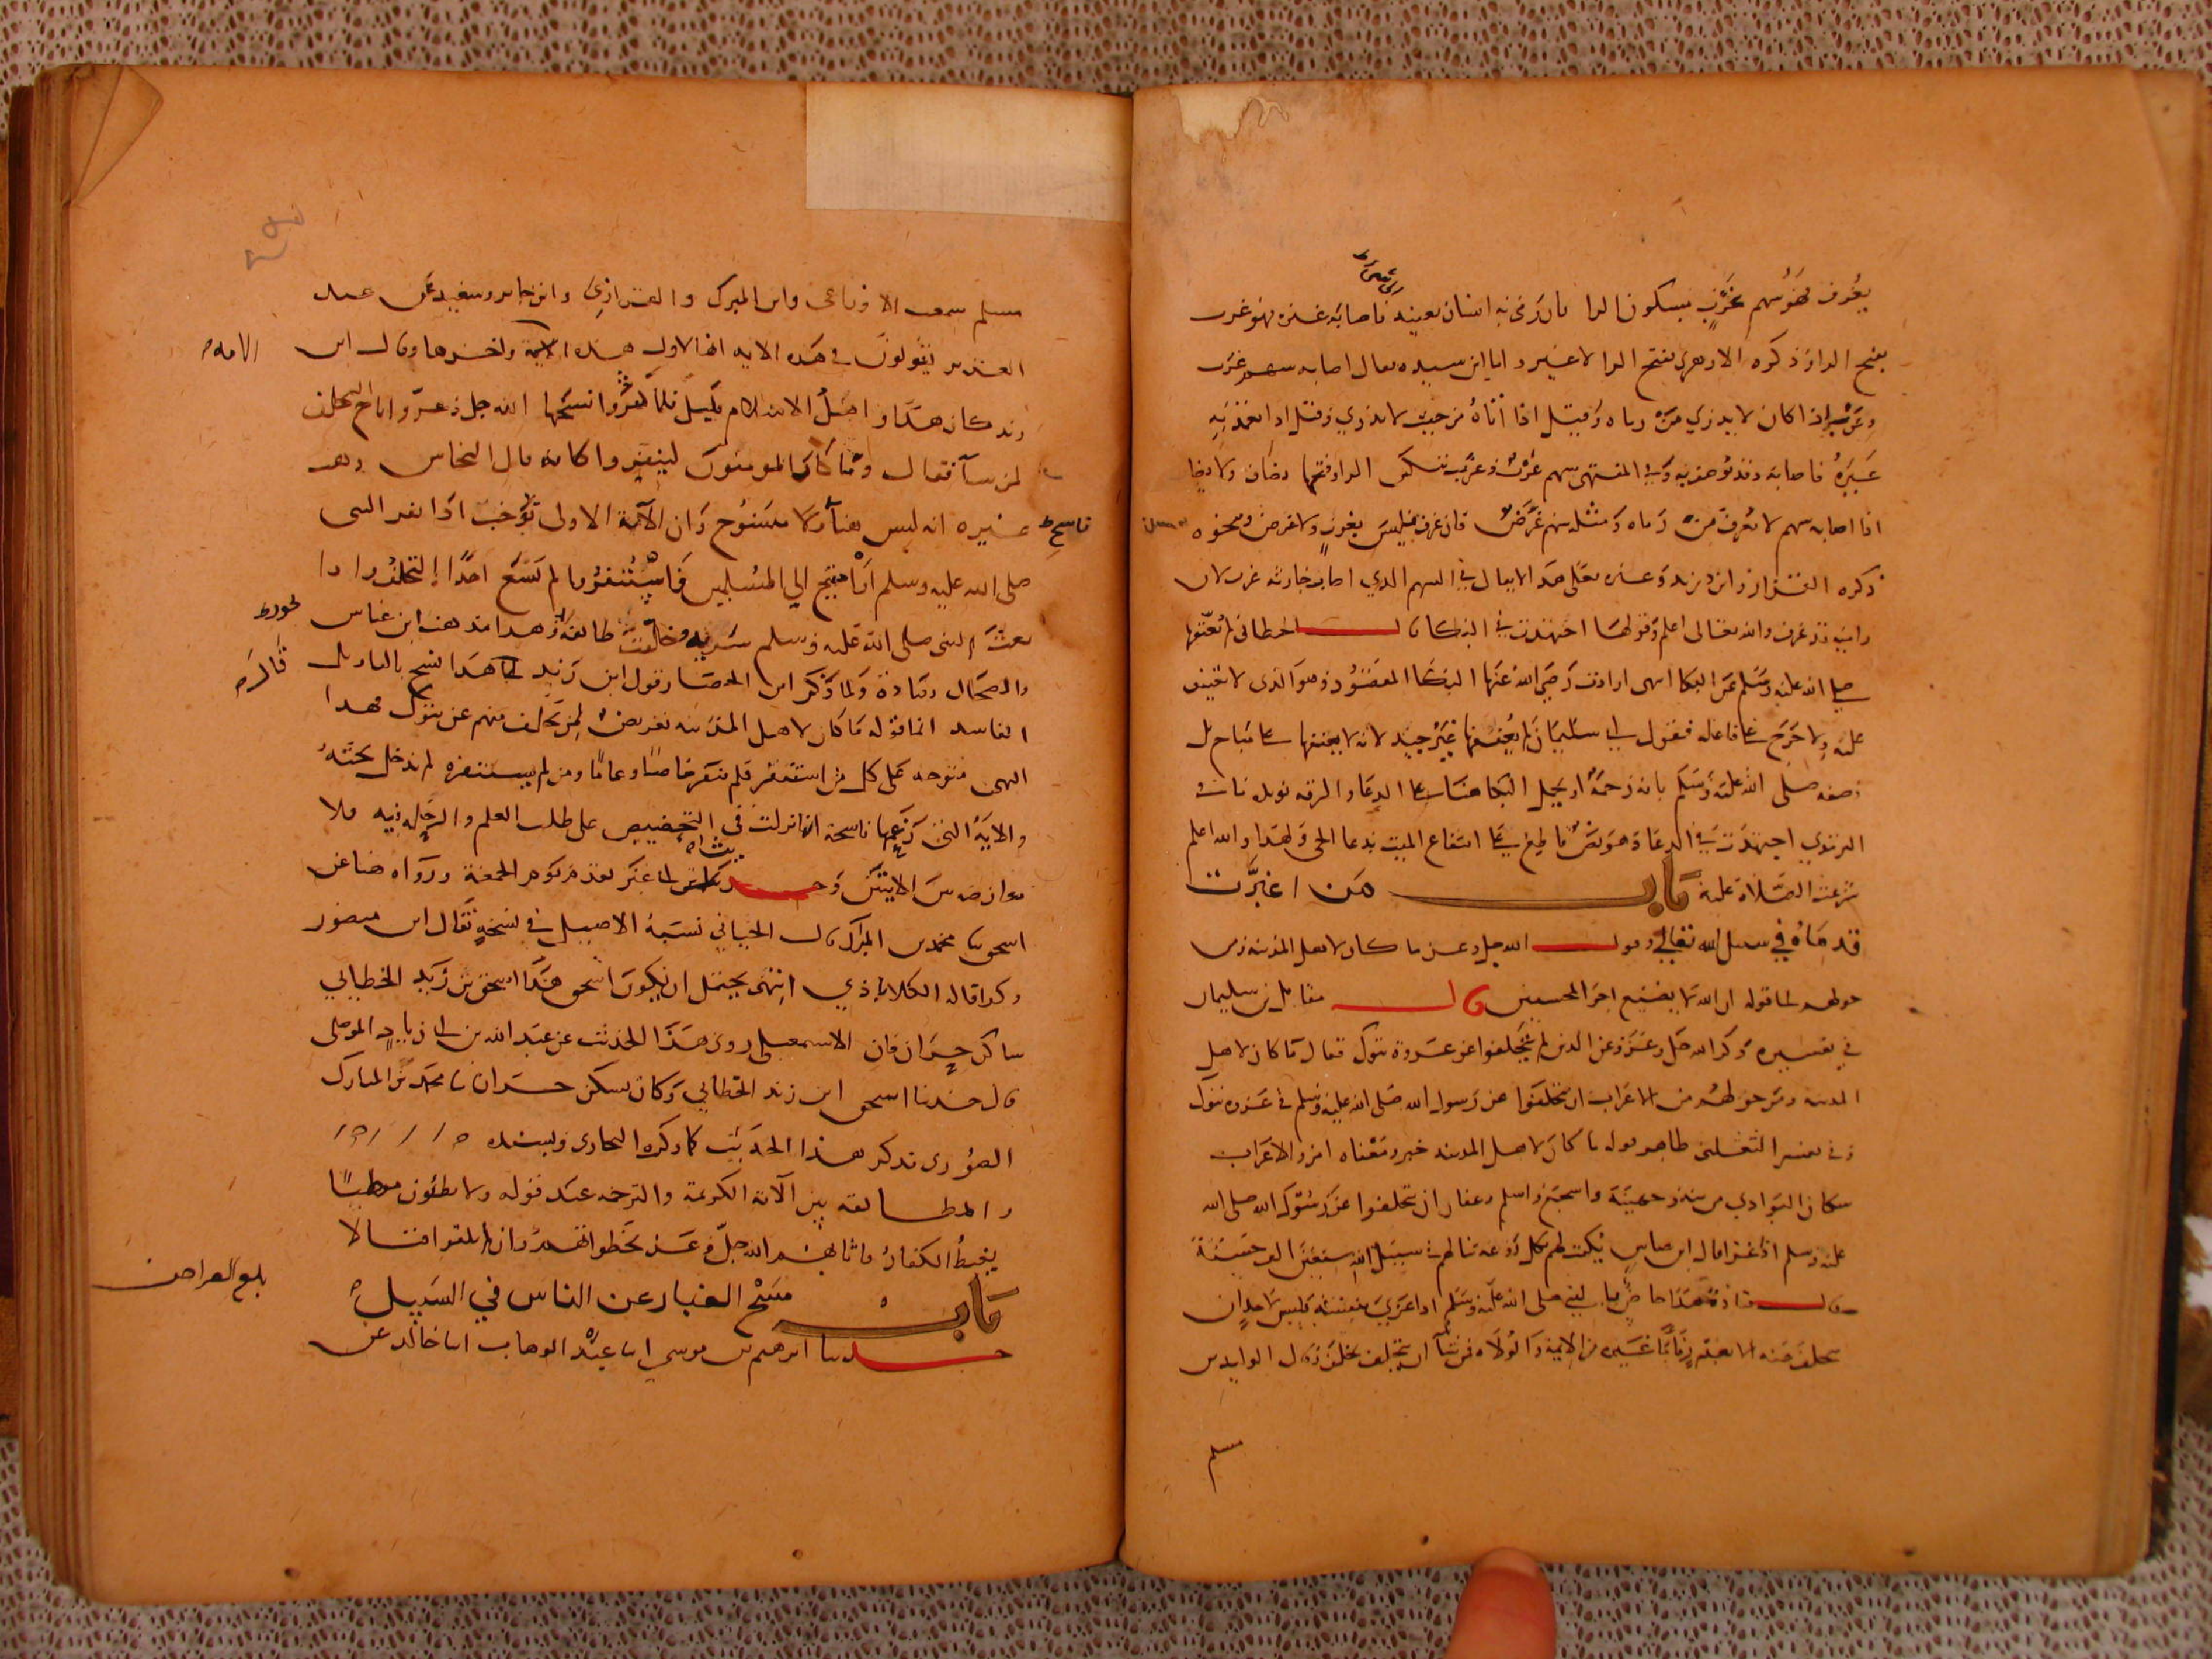 يعرف فهو سهم غرب بسكون الرا فان رمى به انسان بعينه فاصابه غيره فهو غرب
بفتح الرا وذكره الازهري بفتح الرا لا غير واما ابن سيده فقال اصابه سهم غرب
وغرب اذا كان لا يدري من رماه وقيل اذا اتاه من حيث لا يدري وقيل اذا تعمد به
غيره فاصابه وقد يوصف به وفي المنتهى سهم غرب وغرب بسكون الرا وفتحها يضاف ولا يضاف
اذا اصابه سهم لا يعرف من رماه ومثله سهم عرض فان عرف فليس بغرب ولا عرض ونحوه
ذكره القزاز وابن دريد وغيره فعلى هذا لا يقال في السهم الذي اصاب حارثة غرب لان
راميه قد عرف والله تعالى اعلم وقولها اجتهدت في البكا قال الخطابي لم يعنفها
صلى الله عليه وسلم عن البكا انتهى ارادت رضي الله عنها البكا المقصود وهو الذي لا تعنيف
عليه ولا حرج على فاعله فقول ابي سليمان لم يعنفها غير جيد لانه لا يعنفها على مباح بل
وصفه صلى الله عليه وسلم بانه رحمة او يحمل البكا هنا على الدعا والرقة
الترمذي اجتهدت في الدعا وهو نص قاطع في انتفاع الميت بدعا الحي ولهذا والله اعلم
شرعت الصلاة عليه باب من اغبرت
قدماه في سبيل الله تعالى وقول الله جل وعز ما كان لاهل المدينة ومن
حولهم الى قوله ان الله لا يضيع اجر المحسنين قال مقاتل بن سليمان
في تفسيره ذكر الله جل وعز وعن الذين لم يتخلفوا عن غزوة تبوك فقال ما كان لاهل
المدينة ومن حولهم من الاعراب ان يتخلفوا عن رسول الله صلى الله عليه وسلم في غزوة تبوك
وفي تفسير الثعلبي ظاهر قوله ما كان لاهل المدينة خبر ومعناه امر والاعراب
سكان البوادي مزينة وجهينة واشجع واسلم وغفار ان يتخلفوا عن رسول الله صلى الله
عليه وسلم اذا غزا قال ابن عباس يكتب لهم بكل روعة تنالهم في سبيل الله سبعين الف حسنة
وقال قتادة هذا خاص بالنبي صلى الله عليه وسلم اذا غزى بنفسه فليس لاحد ان
يتخلف عنه الا بعذر فاما غيره من الايمة والولاة فمن شآ ان يتخلف تخلف وقال الوليد بن
مسلم
مسلم سمعت الاوزاعى وابن المبرك والفزازي وابن جابر وسعيد بن عبد
العزيز يقولون في هذه الاية انها لاول هذه الامة واخرها وقال ابن
زيد كان هذا واهل الاسلام قليل فلما كثروا نسخها الله جل وعز واباح التخلف
لمن شآ فقال وما كان المومنون لينفروا كافة قال النحاس وذهب
غيره انه ليس هنا ناسخ ولا منسوخ وان الآية الاولى توجب اذا نفر النبى
صلى الله عليه وسلم او احتيج الى المسلمين فاستنفروا لم يسع احدا التخلف واذا
بعث النبى صلى الله عليه وسلم سرية وخلفت طائفة وهذا مذهب ابن عباس
والضحاك وقتادة ولما ذكر ابن الحصار قول ابن زيد قال هذا نسخ بالتاويل
الفاسد انما قوله ما كان لاهل المدينة تعريض لمن تخلف منهم عن تبوك فهذا
النهى متوجه على كل من استنفر فلم ينفر خاصا وعاما ومن لم يستنفره لم يدخل تحته
والاية التي زعم انها ناسخة انما نزلت في التحضيض على طلب العلم والرحلة فيه فلا
تعارض بين الايتين وحديث ابى عبس تقدم في يوم الجمعة ورواه هنا عن
اسحق بنا محمد بن المبرك قال الجياني نسبة الاصيلي في نسخته فقال ابن منصور
وكذا قاله الكلاباذي انتهى يحتمل ان يكون اسحق هذا اسحق بن زيد الخطابي
ساكن حران فان الاسمعيلى روى هذا الحديث عن عبد الله بن زياد الموصلى
قال حدثنا اسحق ابن زيد الخطابي وكان يسكن حران ثنا محمد بن المبارك
الصوري فذكر هذا الحديث كما ذكره البخاري وبسنده
والمطابقة بين الآية الكريمة والترجمة عند قوله ولا يطئون موطئا
يغيظ الكفار فاثابهم الله جل وعز بخطواتهم وان لم يلقوا قتالا
باب مسح الغبار عن الناس في السبيل
حدثنا ابرهيم بن موسى انا عبد الوهاب ثنا خالد عن
ناسخ
الامة
قال
بلغ العراض